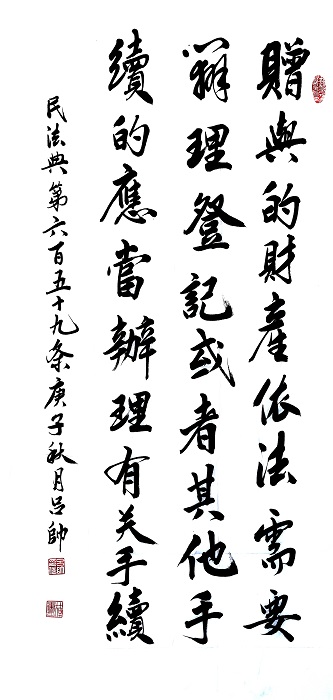 贈與的財產依法需要
辦理登記或者其他手
續的應當辦理有关手續
民法典第六百五十九条庚子秋月吕帥